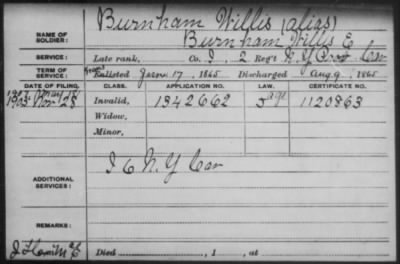 NAME OF SOLDIER: Burnham Willis (alias)
Burnham Willis E
SERVICE: Late rank, Co. I, 2 Reg't N.Y. Prov. Cav
TERM OF SERVICE: Enlisted Jan. 17, 1865 Discharged Aug. 9, 1865
DATE OF FILING. CLASS. APPLICATION NO. LAW. CERTIFICATE NO.
1907 May 18
1903 Nov. 28 Invalid, 1342662 age 1120863
Widow,
Minor,
ADDITIONAL SERVICES: N.Y Cav
REMARKS:
Died , 1 , at